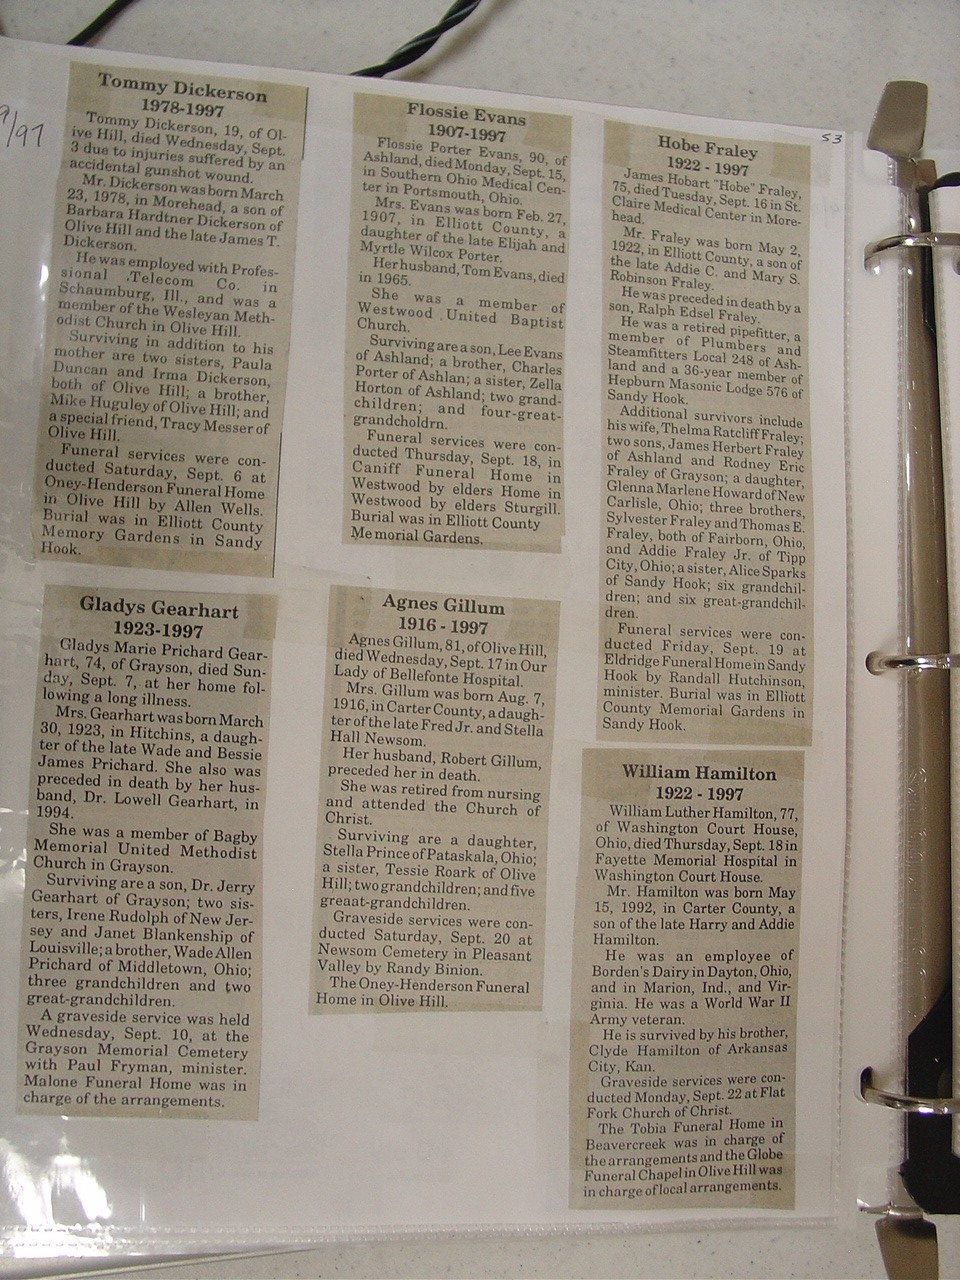 9/97
53
Tommy Dickerson
1978-1997
Tommy Dickerson, 19, of Ol-
ive Hill, died Wednesday, Sept.
3 due to injuries suffered by an
accidental gunshot wound.
Mr. Dickerson was born March
23, 1978, in Morehead, a son of
Barbara Hardtner Dickerson of
Olive Hill and the late James T.
Dickerson.
He was employed with Profes-
sional .Telecom Co. in
Schaumburg, Ill., and was a
member of the Wesleyan Meth-
odist Church in Olive Hill.
Surviving in addition to his
mother are two sisters, Paula
Duncan and Irma Dickerson,
both of Olive Hill; a brother,
Mike Huguley of Olive Hill; and
a special friend, Tracy Messer of
Olive Hill.
Funeral services were con-
ducted Saturday, Sept. 6 at
Oney-Henderson Funeral Home
in Olive Hill by Allen Wells.
Burial was in Elliott County
Memory Gardens in Sandy
Hook.
Gladys Gearhart
1923-1997
Gladys Marie Prichard Gear-
hart, 74, of Grayson, died Sun-
day, Sept. 7, at her home fol-
lowing a long illness.
Mrs. Gearhart was born March
30, 1923, in Hitchins, a daugh-
ter of the late Wade and Bessie
James Prichard. She also was
preceded in death by her hus-
band, Dr. Lowell Gearhart, in
1994.
She was a member of Bagby
Memorial United Methodist
Church in Grayson.
Surviving are a son, Dr. Jerry
Gearhart of Grayson; two sis-
ters, Irene Rudolph of New Jer-
sey and Janet Blankenship of
Louisville; a brother, Wade Allen
Prichard of Middletown, Ohio;
three grandchildren and two
great-grandchildren.
A graveside service was held
Wednesday, Sept. 10, at the
Grayson Memorial Cemetery
with Paul Fryman, minister.
Malone Funeral Home was in
charge of the arrangements.
Flossie Evans
1907-1997
Flossie Porter Evans, 90, of
Ashland, died Monday, Sept. 15,
in Southern Ohio Medical Cen-
ter in Portsmouth, Ohio.
Mrs. Evans was born Feb. 27,
1907, in Elliott County, a
daughter of the late Elijah and
Myrtle Wilcox Porter.
Her husband, Tom Evans, died
in 1965.
She was a member of
Westwood .United Baptist
Church.
Surviving are a son, Lee Evans
of Ashland; a brother, Charles
Porter of Ashlan; a sister, Zella
Horton of Ashland; two grand-
children; and four-great-
grandcholdrn.
Funeral services were con-
ducted Thursday, Sept. 18, in
Caniff Funeral Home in
Westwood by elders Home in
Westwood by elders Sturgill.
Burial was in Elliott County
Memorial Gardens.
Agnes Gillum
1916 - 1997
Agnes Gillum, 81, of Olive Hill,
died Wednesday, Sept. 17 in Our
Lady of Bellefonte Hospital.
Mrs. Gillum was born Aug. 7,
1916, in Carter County, a daugh-
ter of the late Fred Jr. and Stella
Hall Newsom.
Her husband, Robert Gillum,
preceded her in death.
She was retired from nursing
and attended the Church of
Christ.
Surviving are a daughter,
Stella Prince of Pataskala, Ohio;
a sister, Tessie Roark of Olive
Hill; two grandchildren; and five
greaat-grandchildren.
Graveside services were con-
ducted Saturday, Sept. 20 at
Newsom Cemetery in Pleasant
Valley by Randy Binion.
The Oney-Henderson Funeral
Home in Olive Hill.
Hobe Fraley
1922 - 1997
James Hobart "Hobe" Fraley,
75, died Tuesday, Sept. 16 in St.
Claire Medical Center in More-
head.
Mr. Fraley was born May 2,
1922, in Elliott County, a son of
the late Addie C. and Mary S.
Robinson Fraley.
He was preceded in death by a
son, Ralph Edsel Fraley.
He was a retired pipefitter, a
member of Plumbers and
Steamfitters Local 248 of Ash-
land and a 36-year member of
Hepburn Masonic Lodge 576 of
Sandy Hook.
Additional survivors include
his wife, Thelma Ratcliff Fraley;
two sons, James Herbert Fraley
of Ashland and Rodney Eric
Fraley of Grayson; a daughter,
Glenna Marlene Howard of New
Carlisle, Ohio; three brothers,
Sylvester Fraley and Thomas E.
Fraley, both of Fairborn, Ohio,
and Addie Fraley Jr. of Tipp
City, Ohio; a sister, Alice Sparks
of Sandy Hook; six grandchil-
dren; and six great-grandchil-
dren.
Funeral services were con-
ducted Friday, Sept. 19 at
Eldridge Funeral Home in Sandy
Hook by Randall Hutchinson,
minister. Burial was in Elliott
County Memorial Gardens in
Sandy Hook.
William Hamilton
1922 - 1997
William Luther Hamilton, 77,
of Washington Court House,
Ohio, died Thursday, Sept. 18 in
Fayette Memorial Hospital in
Washington Court House.
Mr. Hamilton was born May
15, 1992, in Carter County, a
son of the late Harry and Addie
Hamilton.
He was an employee of
Borden's Dairy in Dayton, Ohio,
and in Marion, Ind., and Vir-
ginia. He was a World War II
Army veteran.
He is survived by his brother,
Clyde Hamilton of Arkansas
City, Kan.
Graveside services were con-
ducted Monday, Sept. 22 at Flat
Fork Church of Christ.
The Tobia Funeral Home in
Beavercreek was in charge of
the arrangements and the Globe
Funeral Chapel in Olive Hill was
in charge of local arrangements.